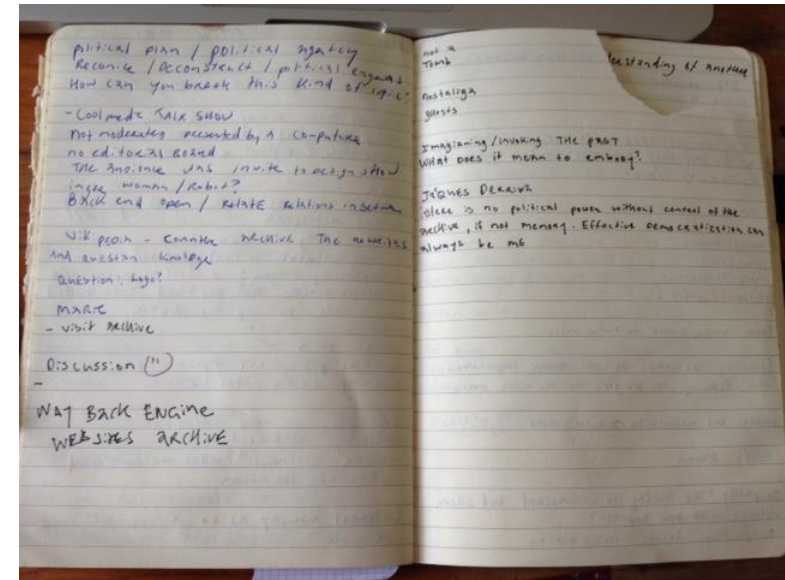 political plan / political agency
Reconize / Deconstruct / political
How can you break this kind of logic?
- Cool media TALK SHOW
not moderated presented by a computer
no editorial Board
The audience was invite to design show
woman / Robot?
Back end open / RELATE relations inbetween
- counter ARCHIVE The
And question knolage
Question: Logo?
MARIE
- visit ARCHIVE
Discussion (")
-
WAY BACK ENGINE
WEBSITES ARCHIVE
not a
Tomb
standing of another
nostaliga
ghosts
Imagianing/invoking THE PAST
What does it mean to embody?
JAQUES
is no political power without control of the
archive, if not memory. Effective Democratization can
always be me